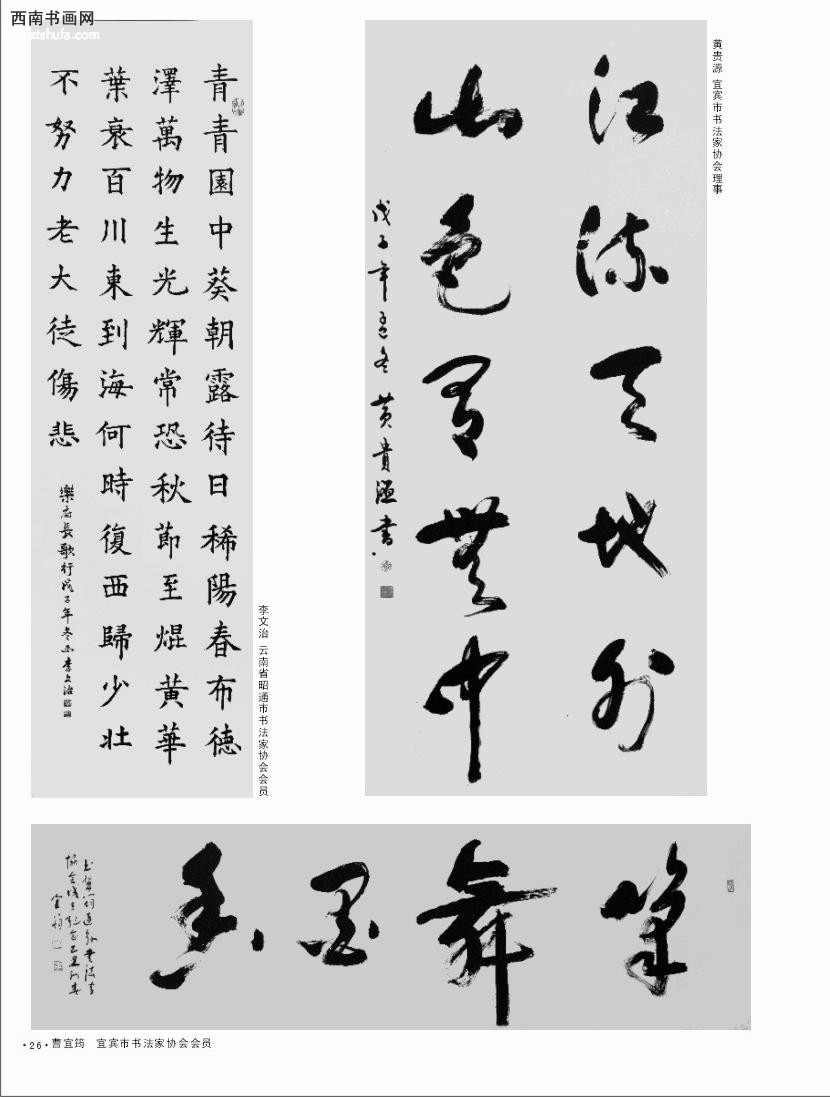 西南书画网
江流天地外
山色有無中
戊子年孟冬黄貴源書
黄贵源 宜宾市书法家协会理事
青青園中葵朝露待日稀陽春布德
澤萬物生光輝常恐秋節至焜黄華
葉衰百川東到海何時復西歸少壯
不努力老大徒傷悲
樂府長歌行戊子年冬李文治
李文治 云南省昭通市书法家协会会员
筆舞墨香
·26·曹宜筠 宜宾市书法家协会会员